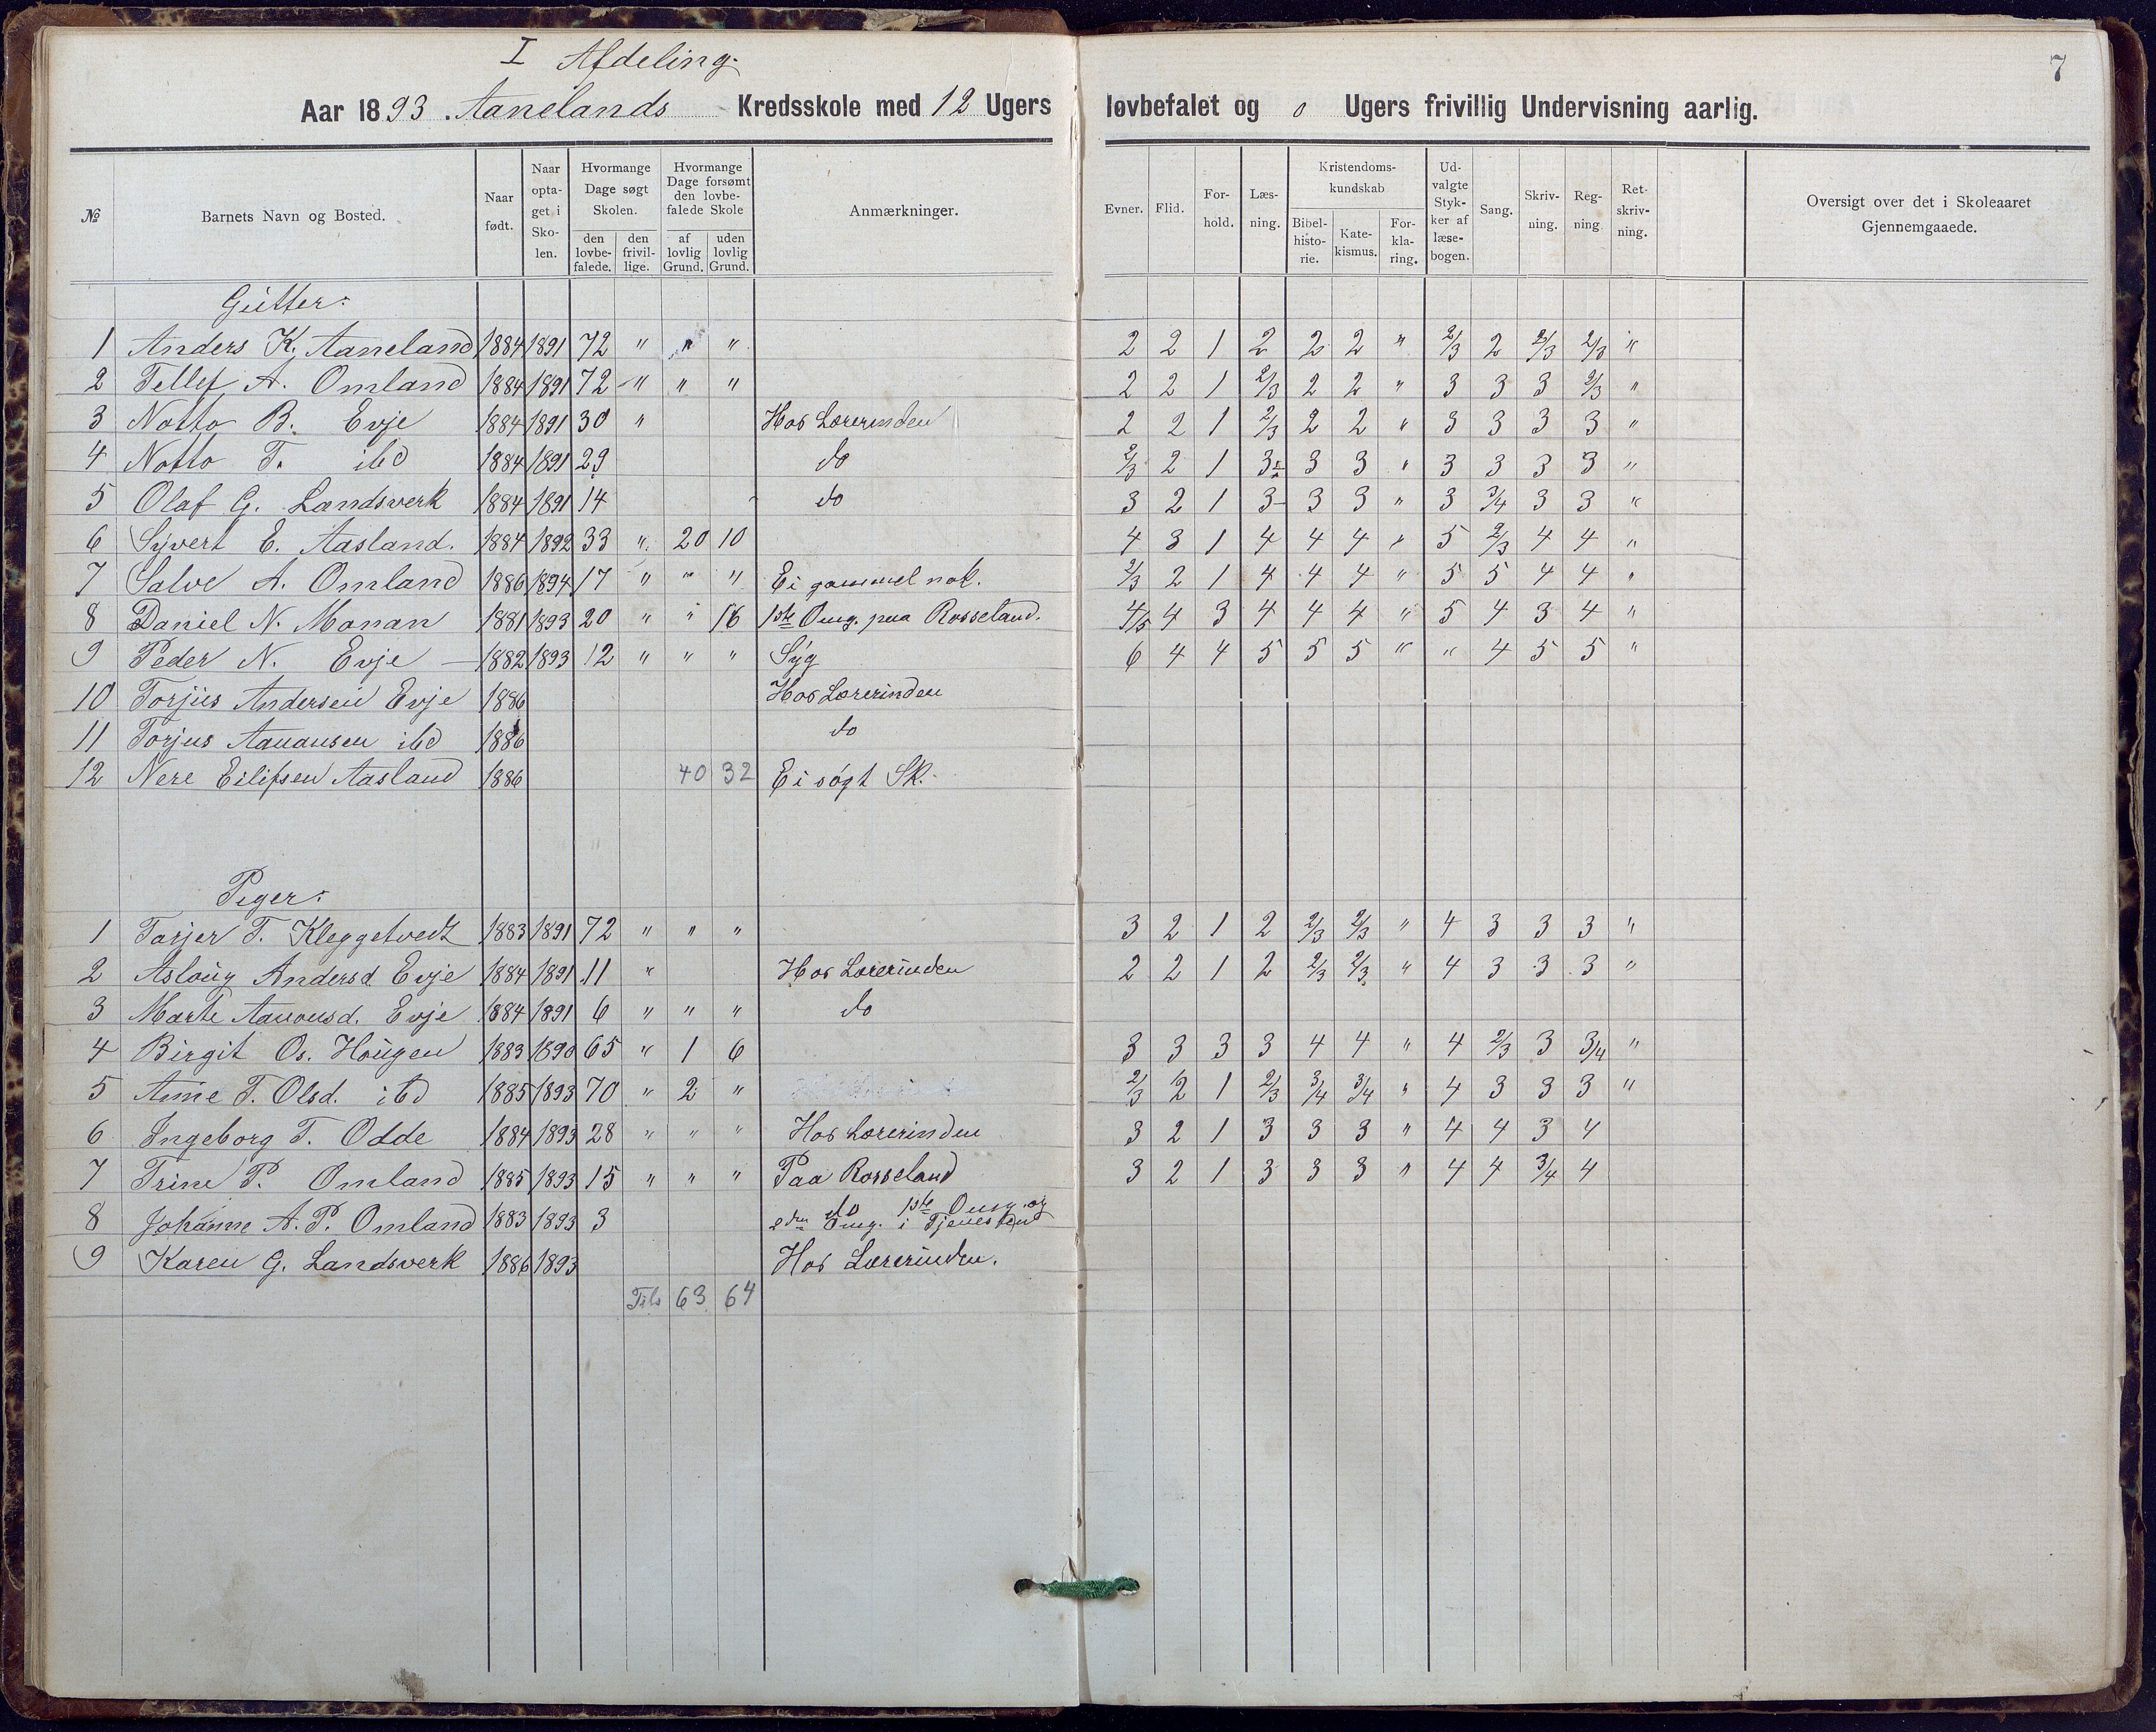 I Afdeling. 7
Aar 1893. Aanelands Kredsskole med 12 Ugers lovbefalet og 0 Ugers frivillig Undervisning aarlig.
№ | Barnets Navn og Bosted. | Naar født. | Naar optaget i Skolen. | Hvormange Dage søgt Skolen. den lovbefalede. | den frivillige. | Hvormange Dage forsømt den lovbefalede Skole af lovlig Grund. | uden lovlig Grund. | Anmærkninger. | Evner. | Flid. | Forhold. | Læsning. | Kristendomskundskab Bibelhistorie. | Katekismus. | Forklaring. | Udvalgte Stykker af læsebogen. | Sang. | Skrivning. | Regning | Retskrivning. | Oversigt over det i Skoleaaret Gjennemgaaede.
Gutter:
1 Anders K. Aaneland 1884 1891 72 " " " 2 2 1 2 2 2 " 2/3 2 2/3 2/3 "
2 Tellef A. Omland 1884 1891 72 " " " 2 2 1 2/3 2 2 " 3 3 3 2/3 "
3 Notto B. Evje 1884 1891 30 " Hos Lærerinden 2 2 1 2/3 2 2 " 3 3 3 3 "
4 Notto T. ibd 1884 1891 29 do 2/3 2 1 3 3 3 " 3 3 3 3 "
5 Olaf G. Landsverk 1884 1891 14 do 3 2 1 3 3 3 " 3 3/4 3 3 "
6 Syvert E. Aasland. 1884 1892 33 " 20 10 4 3 1 4 4 4 " 5 2/3 4 4 "
7 Salve A. Omland 1886 1894 17 " " " Ei gammel nok. 2/3 2 1 4 4 4 " 5 5 4 4 "
8 Daniel N. Monan 1881 1893 20 " " 16 1ste Omg. paa Rosseland. 4/5 4 3 4 4 4 " 5 4 3 4 "
9 Peder N. Evje 1882 1893 12 " " " Syg 6 4 4 5 5 5 " " 4 5 5 "
10 Torjus Andersen Evje 1886 Hos Lærerinden
11 Torjus Aanonsen ibd 1886 do
12 Nere Eilifsen Aasland 1886 40 32 Ei søgt Sk.
Piger:
1 Tarjer T. Kleggetvedt 1883 1891 72 " " " 3 2 1 2 2/3 2/3 " 4 3 3 3 "
2 Asloug Andersd Evje 1884 1891 11 " Hos Lærerinden 2 2 1 2 2/3 2/3 " 4 3 3 3 "
3 Marte Aanonsd. Evje 1884 1891 6 " " " do
4 Birgit Os. Hougen 1883 1890 65 " 1 6 3 3 3 3 4 4 " 4 2/3 3 3/4 "
5 Anne T. Olsd. ibd 1885 1893 70 " 2 " 2/3 2 1 2/3 3/4 3/4 " 4 3 3 3 "
6 Ingeborg T. Odde 1884 1893 28 " " " Hos Lærerinden 3 2 1 3 3 3 " 4 4 3 4
7 Trine P. Omland 1885 1893 15 " " " Paa Rosseland 3 2 1 3 3 3 " 4 4 3/4 4
8 Johanne A. P. Omland 1883 1893 3 do 1ste Omg. og
2den Omg. i Tjenesten
9 Karen G. Landsverk 1886 1893 Hos Lærerinden.
Tils 63 64